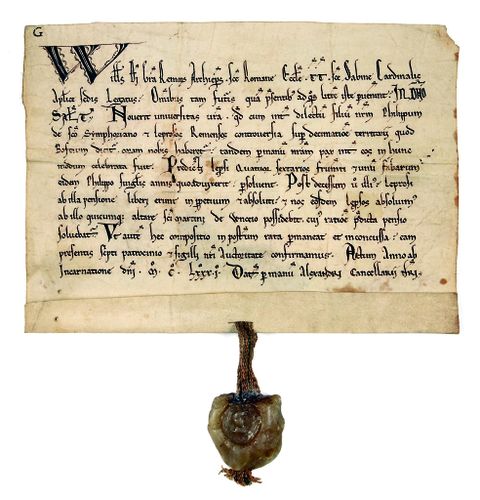 G
Wills dei gra Remensis Archieps. sce Romane Eccle. tt. sce Sabine Cardinalis
Aplice sedis Legatus. Omnibus tam futuris qua psentibus ad qs litte iste puenerint. IN DNO
SALT. Noverit universitas vra. qd cum int dilectum filiu nrm Philippum
de sco Symphoriano et leprosos Remenses controversia sup decimatione territorii quod
dicitur. coram nobis haberetur. tandem p manu nram pax int eos in hunc
modum celebrata fuit. Predicti lepsi quatuor sextarios frumti et unu fabarum
eidem Philippo singlis annis quoad vixerit psolvent. Post decessum u illi. leprosi
ab illa pensione liberi erunt in ppetuum et absoluti. et nos eosdem lepsos absolvim
ab illo quicumq altare sci martini de possidebit. cuius ratione pdicta pensio
solvebat. Ut autem hec compositio in postrum rata pmaneat et inconcussa. eam
presentis scpti patrocinio et sigilli nri auctoritate confirmamus. Actum anno ab
Incarnatione dni. M. C. LXXX. I. Dat p manu Alexandri Cancellarii nri.